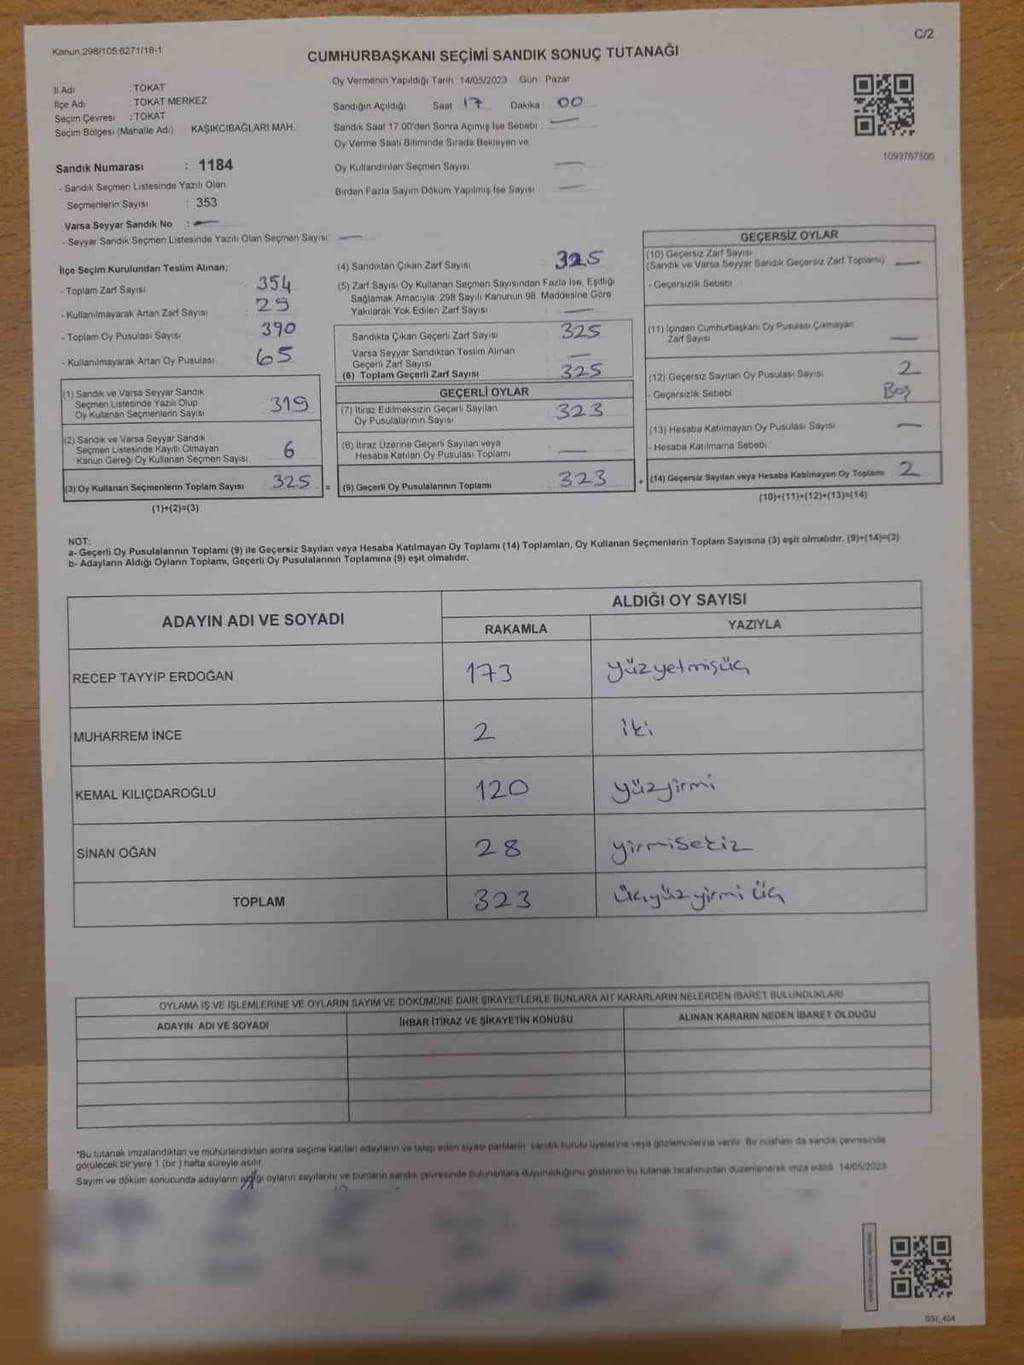 Kanun:298/105 6271/18-1
C/2
CUMHURBAŞKANI SEÇİMİ SANDIK SONUÇ TUTANAĞI
İl Adı : TOKAT
İlçe Adı : TOKAT MERKEZ
Seçim Çevresi : TOKAT
Seçim Bölgesi (Mahalle Adı) KAŞIKCIBAĞLARI MAH.
Oy Vermenin Yapıldığı Tarih :14/05/2023 Gün : Pazar
Sandığın Açıldığı Saat 17 Dakika 00
Sandık Saat 17:00'den Sonra Açımış İse Sebebi —
Oy Verme Saati Bitiminde Sırada Bekleyen ve
Oy Kullandırılan Seçmen Sayısı —
Birden Fazla Sayım Döküm Yapılmış İse Sayısı —
1093767500
Sandık Numarası : 1184
- Sandık Seçmen Listesinde Yazılı Olan
Seçmenlerin Sayısı : 353
Varsa Seyyar Sandık No : —
- Seyyar Sandık Seçmen Listesinde Yazılı Olan Seçmen Sayısı: —
İlçe Seçim Kurulundan Teslim Alınan;
- Toplam Zarf Sayısı 354
- Kullanılmayarak Artan Zarf Sayısı 29
- Toplam Oy Pusulası Sayısı 390
- Kullanılmayarak Artan Oy Pusulası 65
(1) Sandık ve Varsa Seyyar Sandık
Seçmen Listesinde Yazılı Olup
Oy Kullanan Seçmenlerin Sayısı 319
(2) Sandık ve Varsa Seyyar Sandık
Seçmen Listesinde Kayıtlı Olmayan
Kanun Gereği Oy Kullanan Seçmen Sayısı 6
(3) Oy Kullanan Seçmenlerin Toplam Sayısı 325 =
(1)+(2)=(3)
(4) Sandıktan Çıkan Zarf Sayısı 325
(5) Zarf Sayısı Oy Kullanan Seçmen Sayısından Fazla İse, Eşitliği
Sağlamak Amacıyla 298 Sayılı Kanunun 98. Maddesine Göre
Yakılarak Yok Edilen Zarf Sayısı —
Sandıkta Çıkan Geçerli Zarf Sayısı 325
Varsa Seyyar Sandıktan Teslim Alınan
Geçerli Zarf Sayısı —
(6) Toplam Geçerli Zarf Sayısı 325
GEÇERLİ OYLAR
(7) İtiraz Edilmeksizin Geçerli Sayılan
Oy Pusulalarının Sayısı 323
(8) İtiraz Üzerine Geçerli Sayılan veya
Hesaba Katılan Oy Pusulası Toplamı —
(9) Geçerli Oy Pusulalarının Toplamı 323 +
GEÇERSİZ OYLAR
(10) Geçersiz Zarf Sayısı
(Sandık ve Varsa Seyyar Sandık Geçersiz Zarf Toplamı) —
- Geçersizlik Sebebi
(11) İçinden Cumhurbaşkanı Oy Pusulası Çıkmayan
Zarf Sayısı —
(12) Geçersiz Sayılan Oy Pusulası Sayısı 2
- Geçersizlik Sebebi Boş
(13) Hesaba Katılmayan Oy Pusulası Sayısı —
- Hesaba Katılmama Sebebi
(14) Geçersiz Sayılan veya Hesaba Katılmayan Oy Toplamı 2
(10)+(11)+(12)+(13)=(14)
NOT:
a- Geçerli Oy Pusulalarının Toplamı (9) ile Geçersiz Sayılan veya Hesaba Katılmayan Oy Toplamı (14) Toplamları, Oy Kullanan Seçmenlerin Toplam Sayısına (3) eşit olmalıdır. (9)+(14)=(3)
b- Adayların Aldığı Oyların Toplamı, Geçerli Oy Pusulalarının Toplamına (9) eşit olmalıdır.
ADAYIN ADI VE SOYADI ALDIĞI OY SAYISI
RAKAMLA YAZIYLA
RECEP TAYYİP ERDOĞAN 173 yüzyetmişüç
MUHARREM İNCE 2 iki
KEMAL KILIÇDAROĞLU 120 yüzyirmi
SİNAN OĞAN 28 yirmisekiz
TOPLAM 323 üçyüzyirmi üç
OYLAMA İŞ VE İŞLEMLERİNE VE OYLARIN SAYIM VE DÖKÜMÜNE DAİR ŞİKAYETLERLE BUNLARA AİT KARARLARIN NELERDEN İBARET BULUNDUKLARI
ADAYIN ADI VE SOYADI İHBAR İTİRAZ VE ŞİKAYETİN KONUSU ALINAN KARARIN NEDEN İBARET OLDUĞU
*Bu tutanak imzalandıktan ve mühürlendikten sonra seçime katılan adayların ve talep eden siyasi partilerin, sandık kurulu üyelerine veya gözlemcilerine verilir. Bir nüshası da sandık çevresinde
görülecek bir yere 1 (bir) hafta süreyle asılır.
Sayım ve döküm sonucunda adayların aldığı oyların sayılarını ve bunların sandık çevresinde bulunanlara duyurulduğunu gösteren bu tutanak tarafımızdan düzenlenerek imza edildi. 14/05/2023
SSI_404